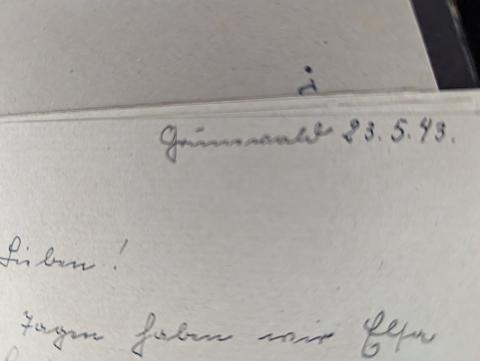 Grünwald 23.5.43.
Lieben!
Tagen haben wir